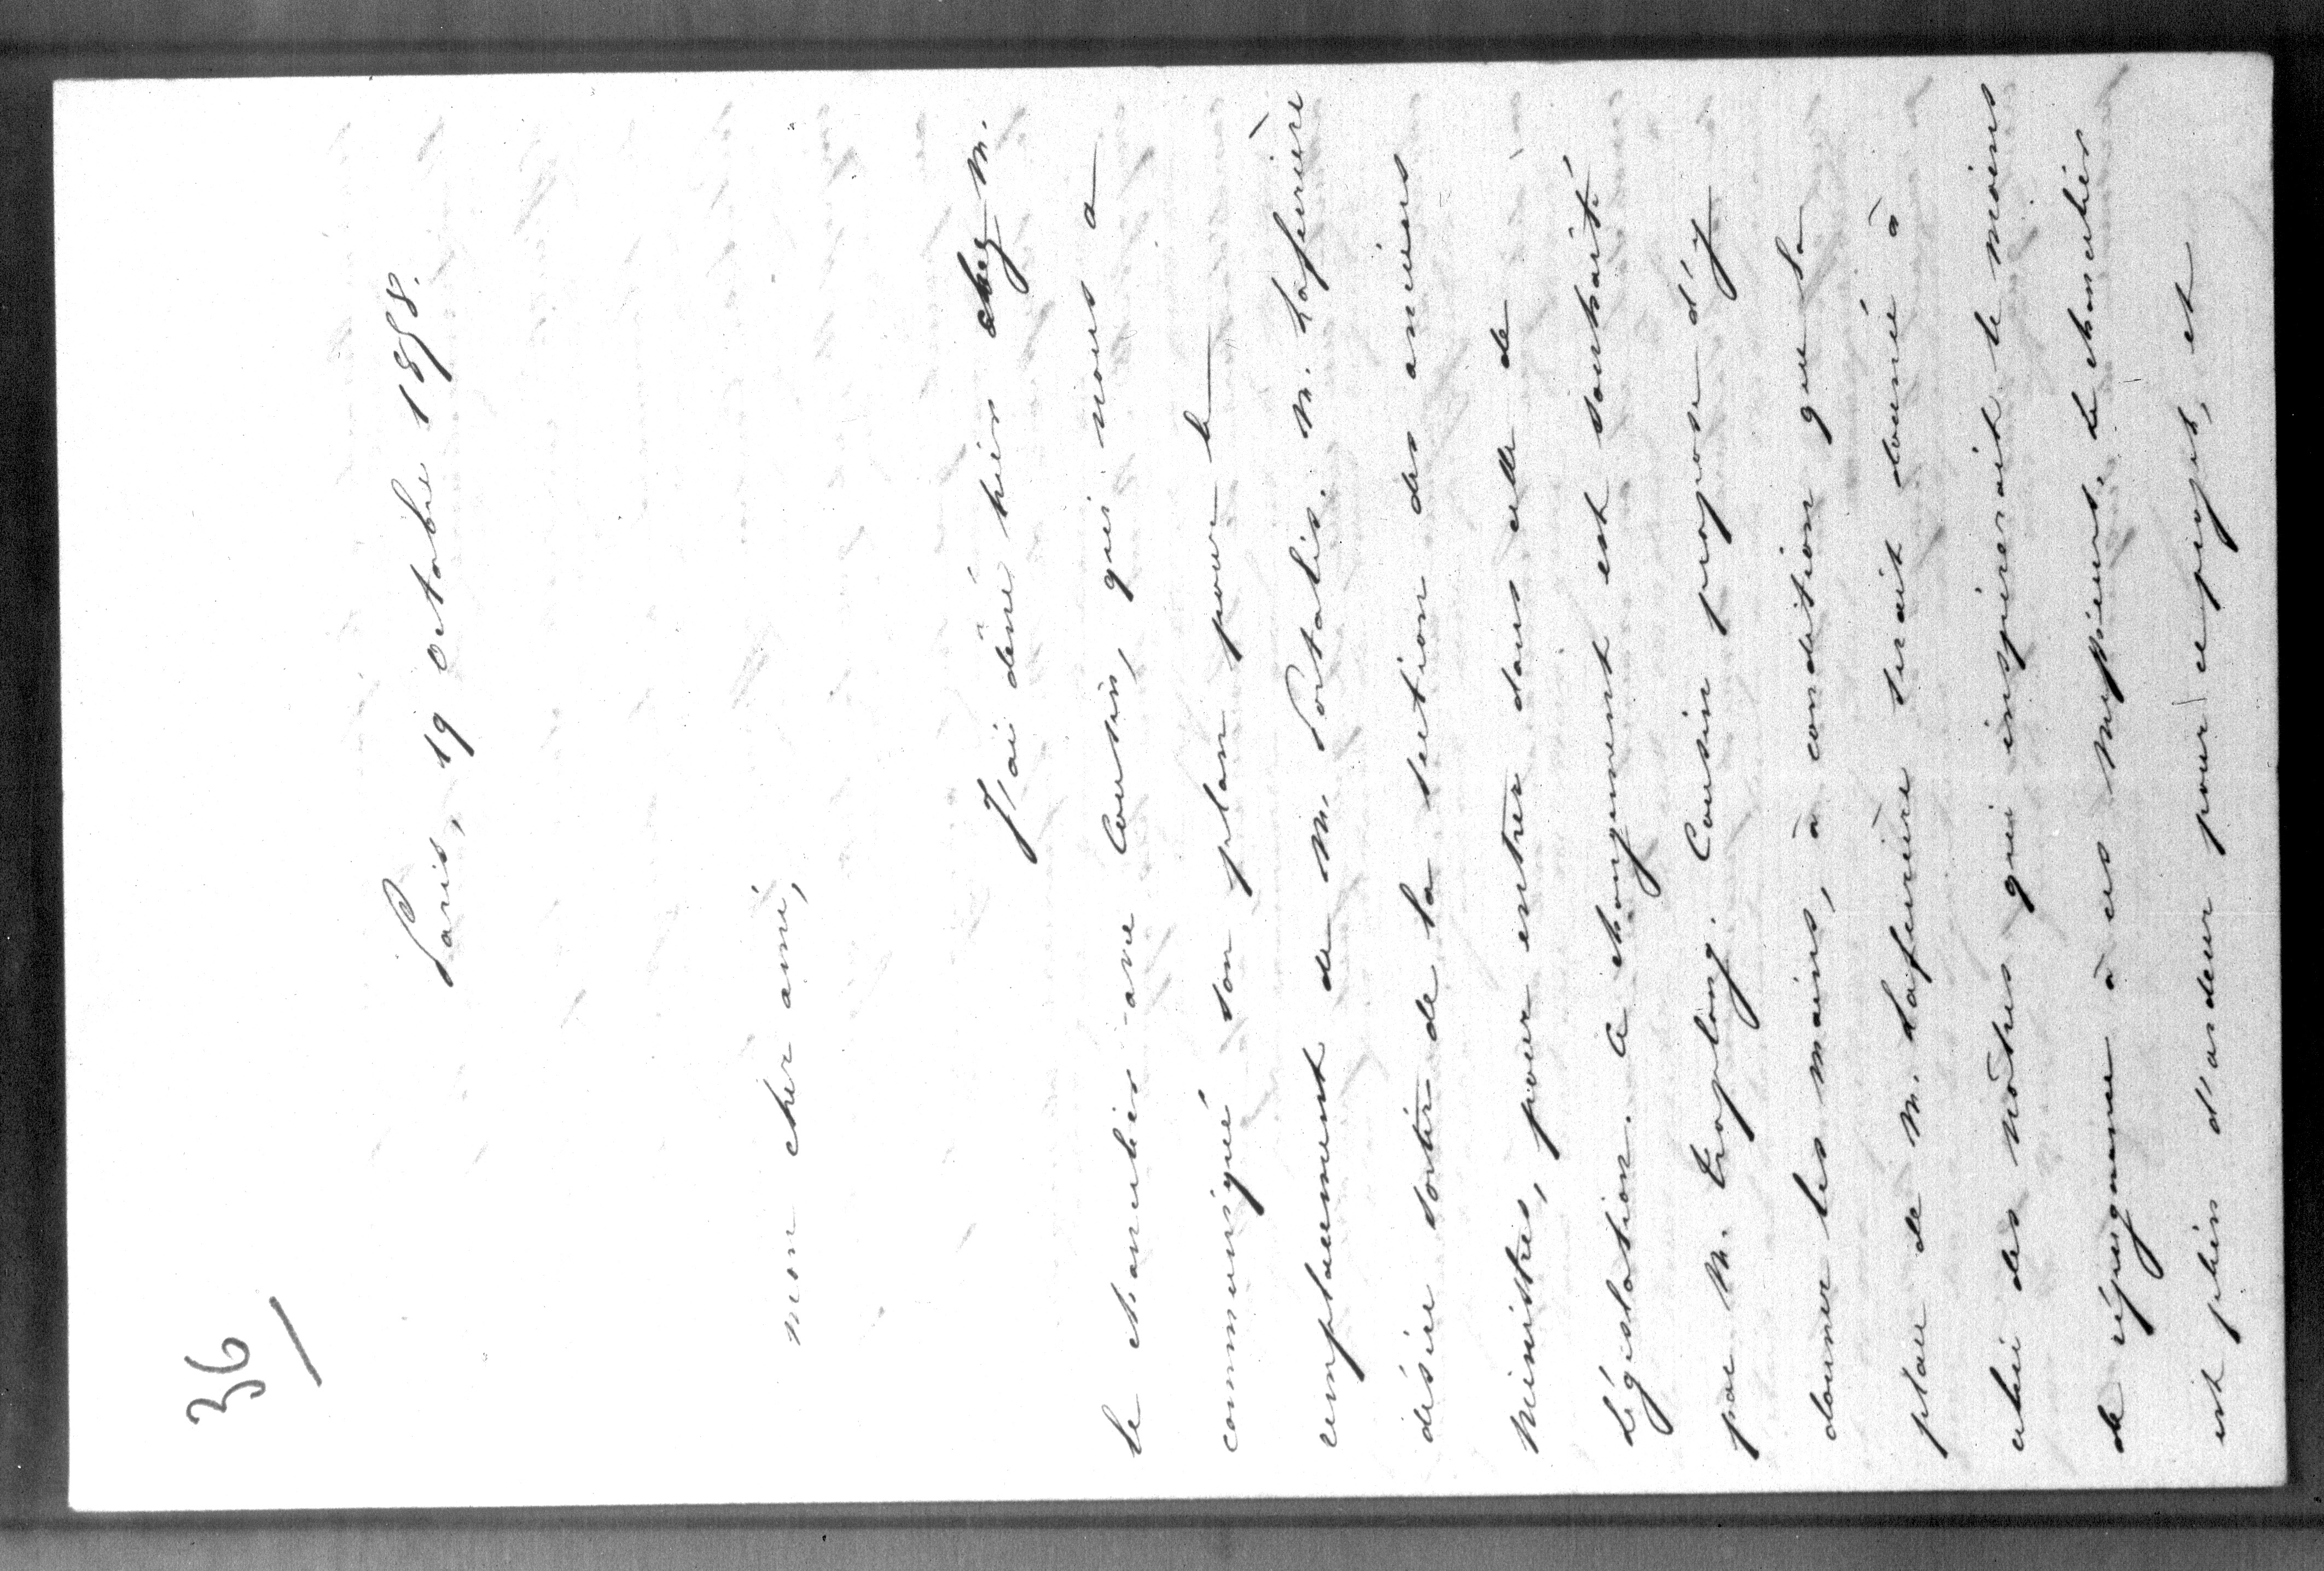 36
Paris, 19 octobre 1858.
mon cher ami,
J'ai dîné hier chez M.
le chancelier avec Cousin, qui nous a
communiqué son plan pour le
remplacement de M. Portalis. M. Laferrière
désire sortir de la section des anciens
Ministres, pour entrer dans celle de
Législation. Ce changement est souhaité
par M. Troplong. Cousin propose d'y
donner les mains, à condition que la
place de M. Laferrière serait donnée à
celui des nôtres qui inspirerait le moins
de répugnance à ces Messieurs. Le chancelier
est plein d'ardeur pour ce projet, et